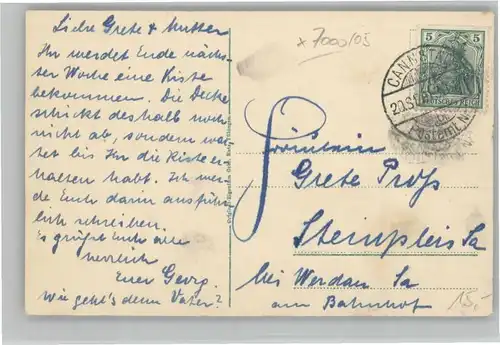 Liebe Grete & Mutter
Ihr werdet Ende näch-
ster Woche eine Kiste
bekommen. Die Decke
schickt deshalb noch
nicht ab, sondern war
tet bis Ihr die Kiste er-
halten habt. Ich wer-
de Euch darin ausführ
lich schreiben.
Es grüßt Euch alle
herzlich
Euer Georg.
wie geht's denn Vater?
x 7000/05
5 5
DEUTSCHES REICH
CANNSTATT
Fräulein
Grete Proß
Steinpleis Sa
bei Werdau Sa
am Bahnhof
15.-